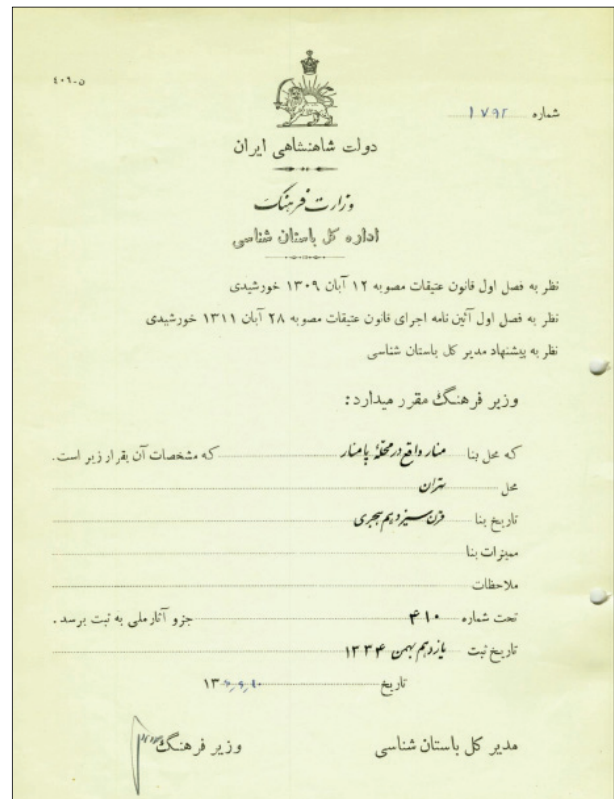 ن-٤٠٦
شماره ۱۷۹۲
دولت شاهنشاهی ایران
وزارت فرهنگ
اداره کل باستان شناسی
نظر به فصل اول قانون عتیقات مصوبه ۱۲ آبان ۱۳۰۹ خورشیدی
نظر به فصل اول آئین نامه اجرای قانون عتیقات مصوبه ۲۸ آبان ۱۳۱۱ خورشیدی
نظر به پیشنهاد مدیر کل باستان شناسی
وزیر فرهنگ مقرر میدارد:
که محل بنا منار واقع در محلهٔ پامنار که مشخصات آن بقرار زیر است.
محل تهران
تاریخ بنا قرن سیزدهم هجری
ممیزات بنا
ملاحظات
تحت شماره ۴۱۰ جزو آثار ملی به ثبت برسد.
تاریخ ثبت یازدهم بهمن ۱۳۳۴
تاریخ ۱۳
مدیر کل باستان شناسی وزیر فرهنگ